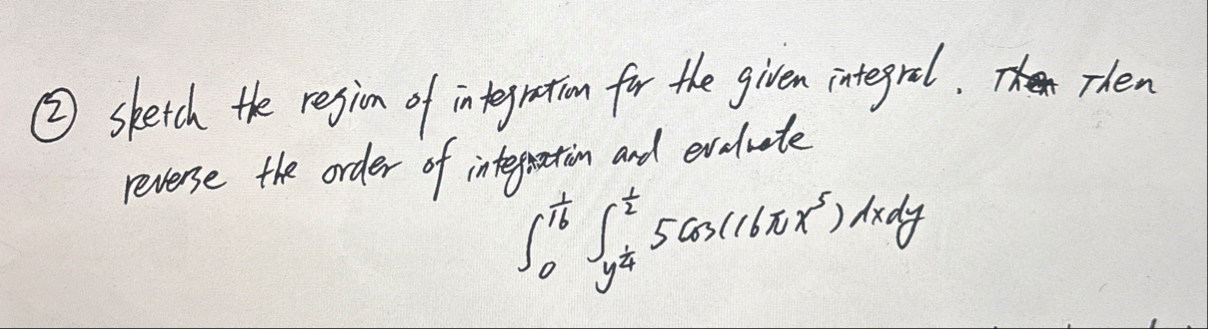 ② sketch the region of integration for the given integral. Then
reverse the order of integration and evaluate
∫₀^(1/16) ∫_(y^(1/4))^(1/2) 5cos(16πx⁵)dxdy